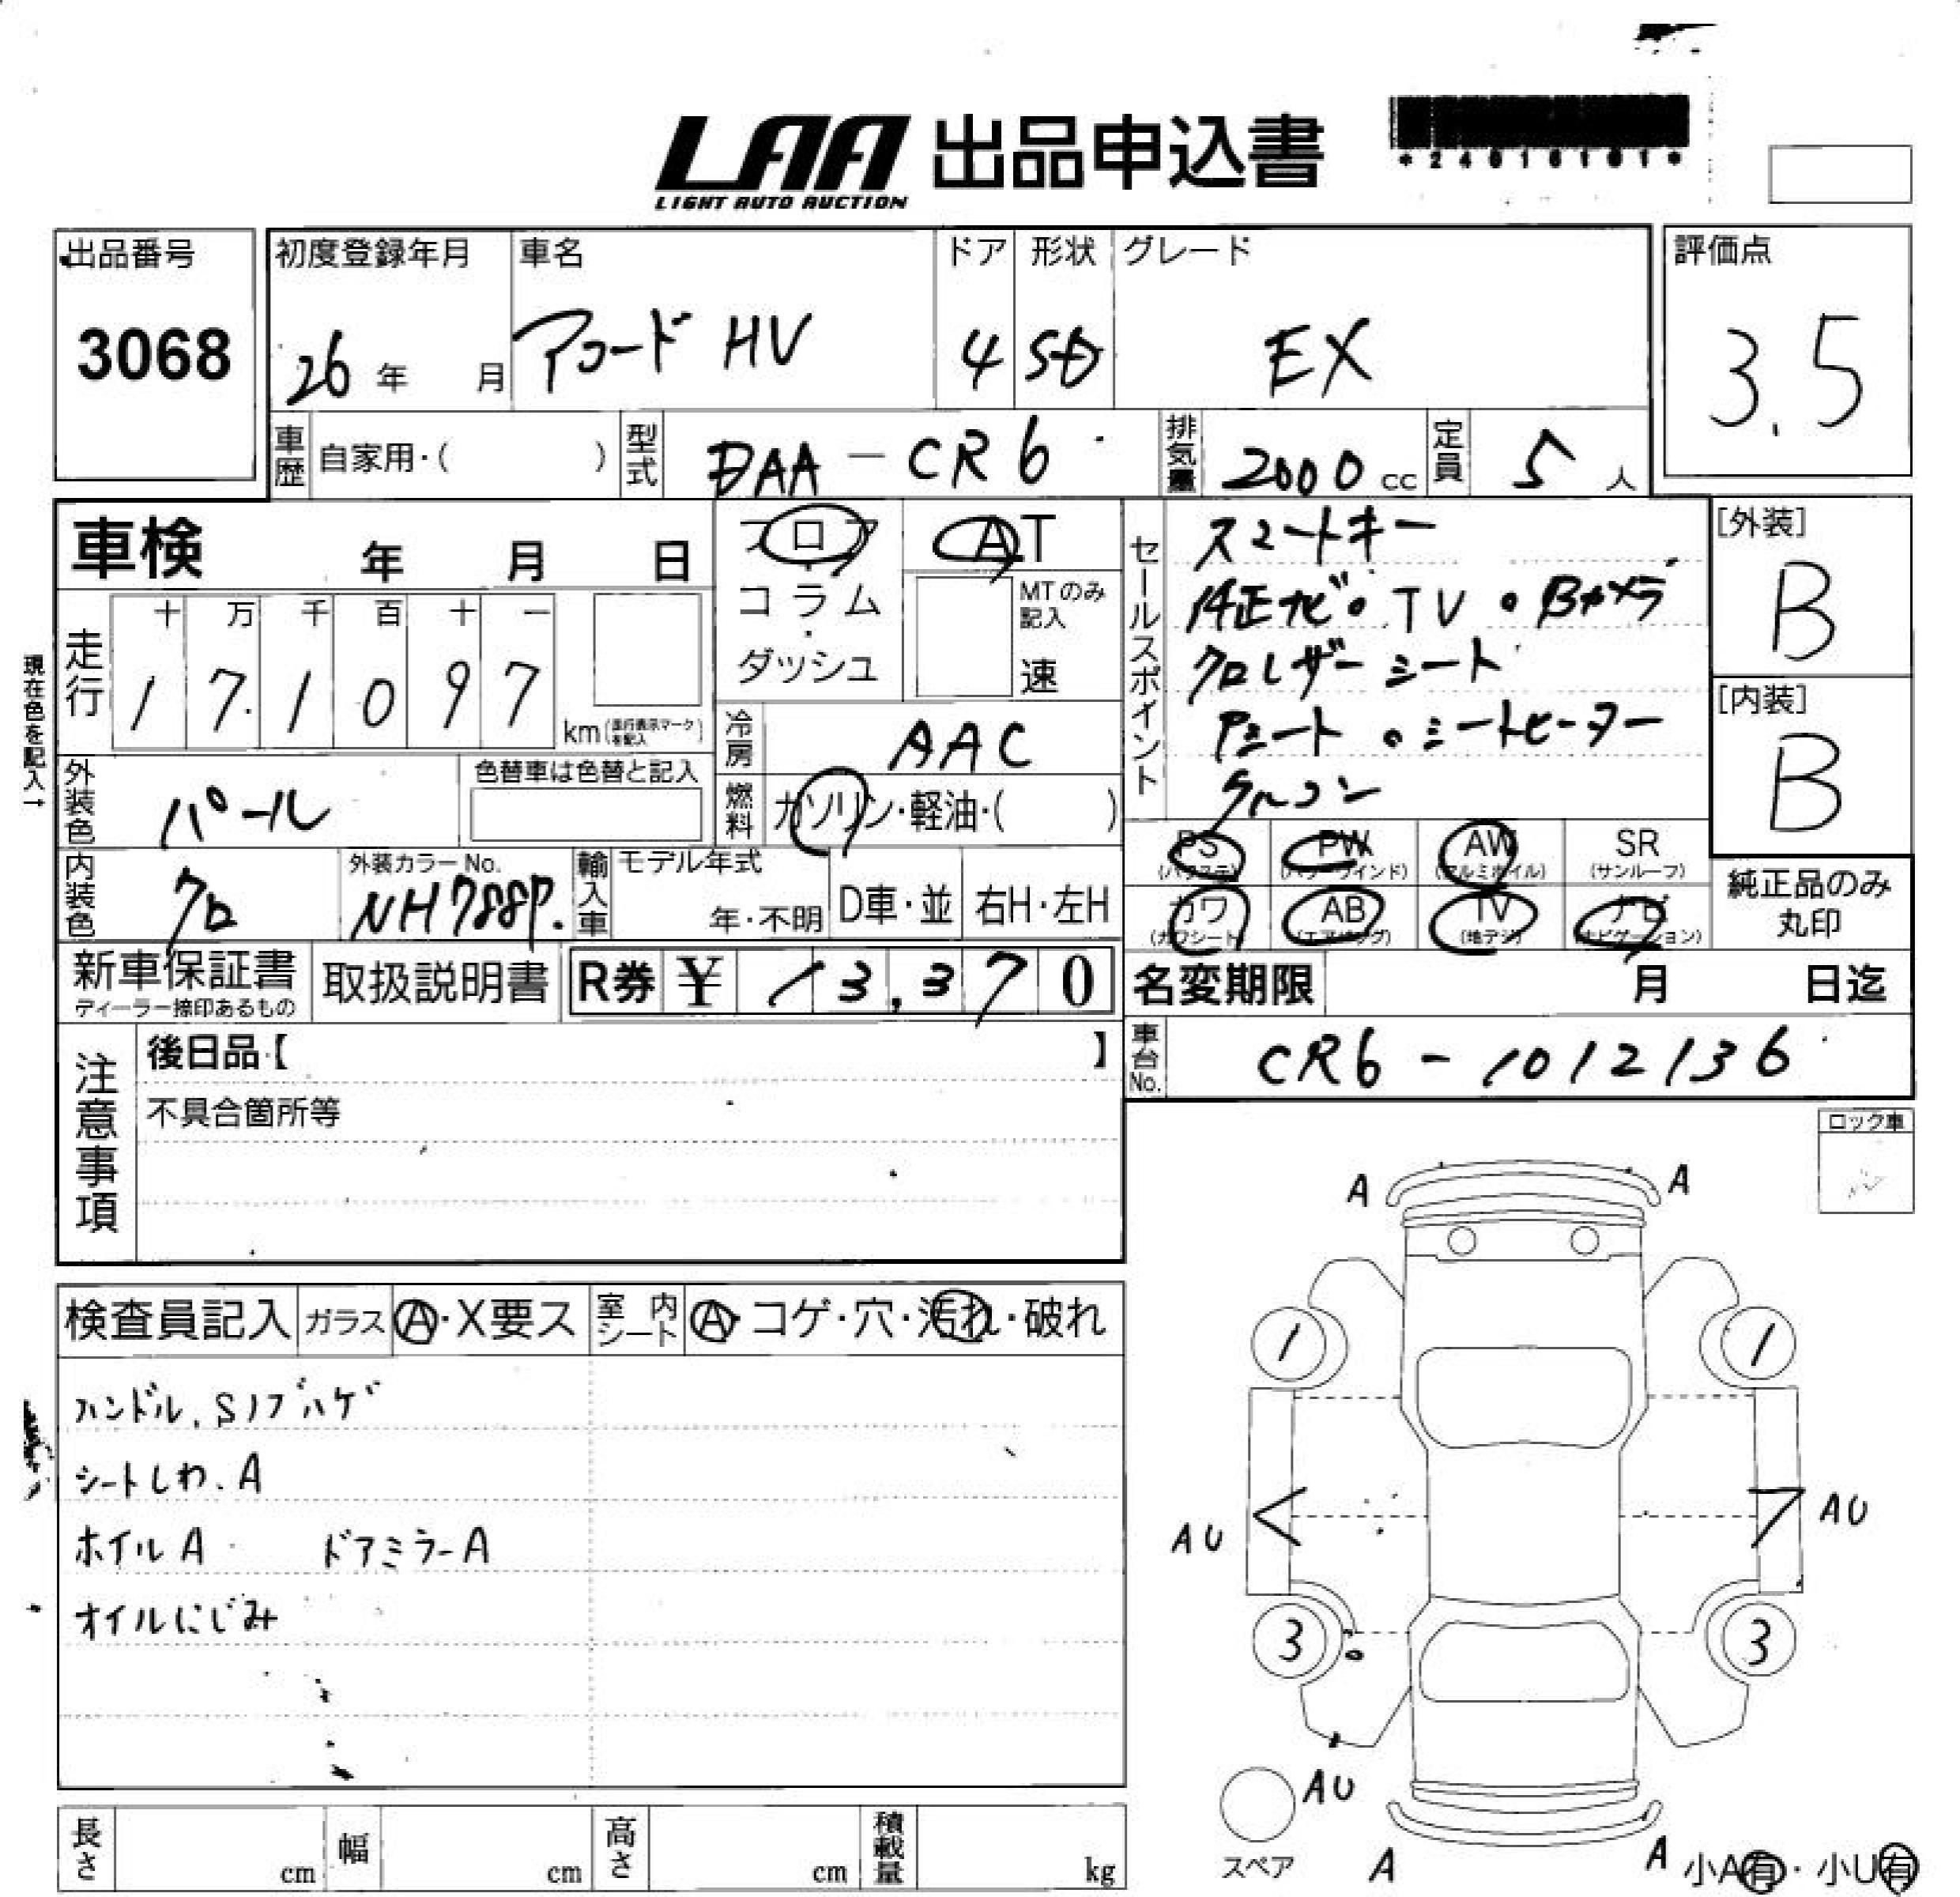 LAA 出品申込書
LIGHT AUTO AUCTION
*24016101*
出品番号 初度登録年月 車名 ドア 形状 グレード 評価点
3068 26年 月 アコード HV 4 SD EX 3.5
車歴 自家用・( ) 型式 DAA-CR6 排気量 2000 cc 定員 5 人
車検 年 月 日 フロア AT セールスポイント スマートキー [外装]
コラム・ダッシュ MTのみ記入 速 純正ナビ・TV・Bカメラ B
現在色を記入→
走行 十 万 千 百 十 一 クロレザーシート
1 7 1 0 9 7 km(走行表示マークを記入) [内装]
冷房 AAC Pシート・シートヒーター B
外装色 パール 色替車は色替と記入 燃料 ガソリン・軽油・( ) クルコン
PS (パワステ) PW (パワーウインド) AW (アルミホイル) SR (サンルーフ)
内装色 クロ 外装カラーNo. NH788P. 輸入車 モデル年式 年・不明 D車・並 右H・左H
カワ (カワシート) AB (エアバッグ) TV (地デジ) ナビ (ナビゲーション) 純正品のみ丸印
新車保証書 ディーラー捺印あるもの 取扱説明書 R券 ¥ 13,370 名変期限 月 日迄
注意事項 後日品【 】 車台No. CR6-1012136
不具合箇所等
ロック車
A A
検査員記入 ガラス A・X要ス 室内シート A・コゲ・穴・汚れ・破れ
1 1
ハンドル、Sノブハゲ
シートしわ、A
AU AU
ホイルA ドアミラーA
オイルにじみ
3 3
AU
スペア A A 小A有・小U有
長さ cm 幅 cm 高さ cm 積載量 kg